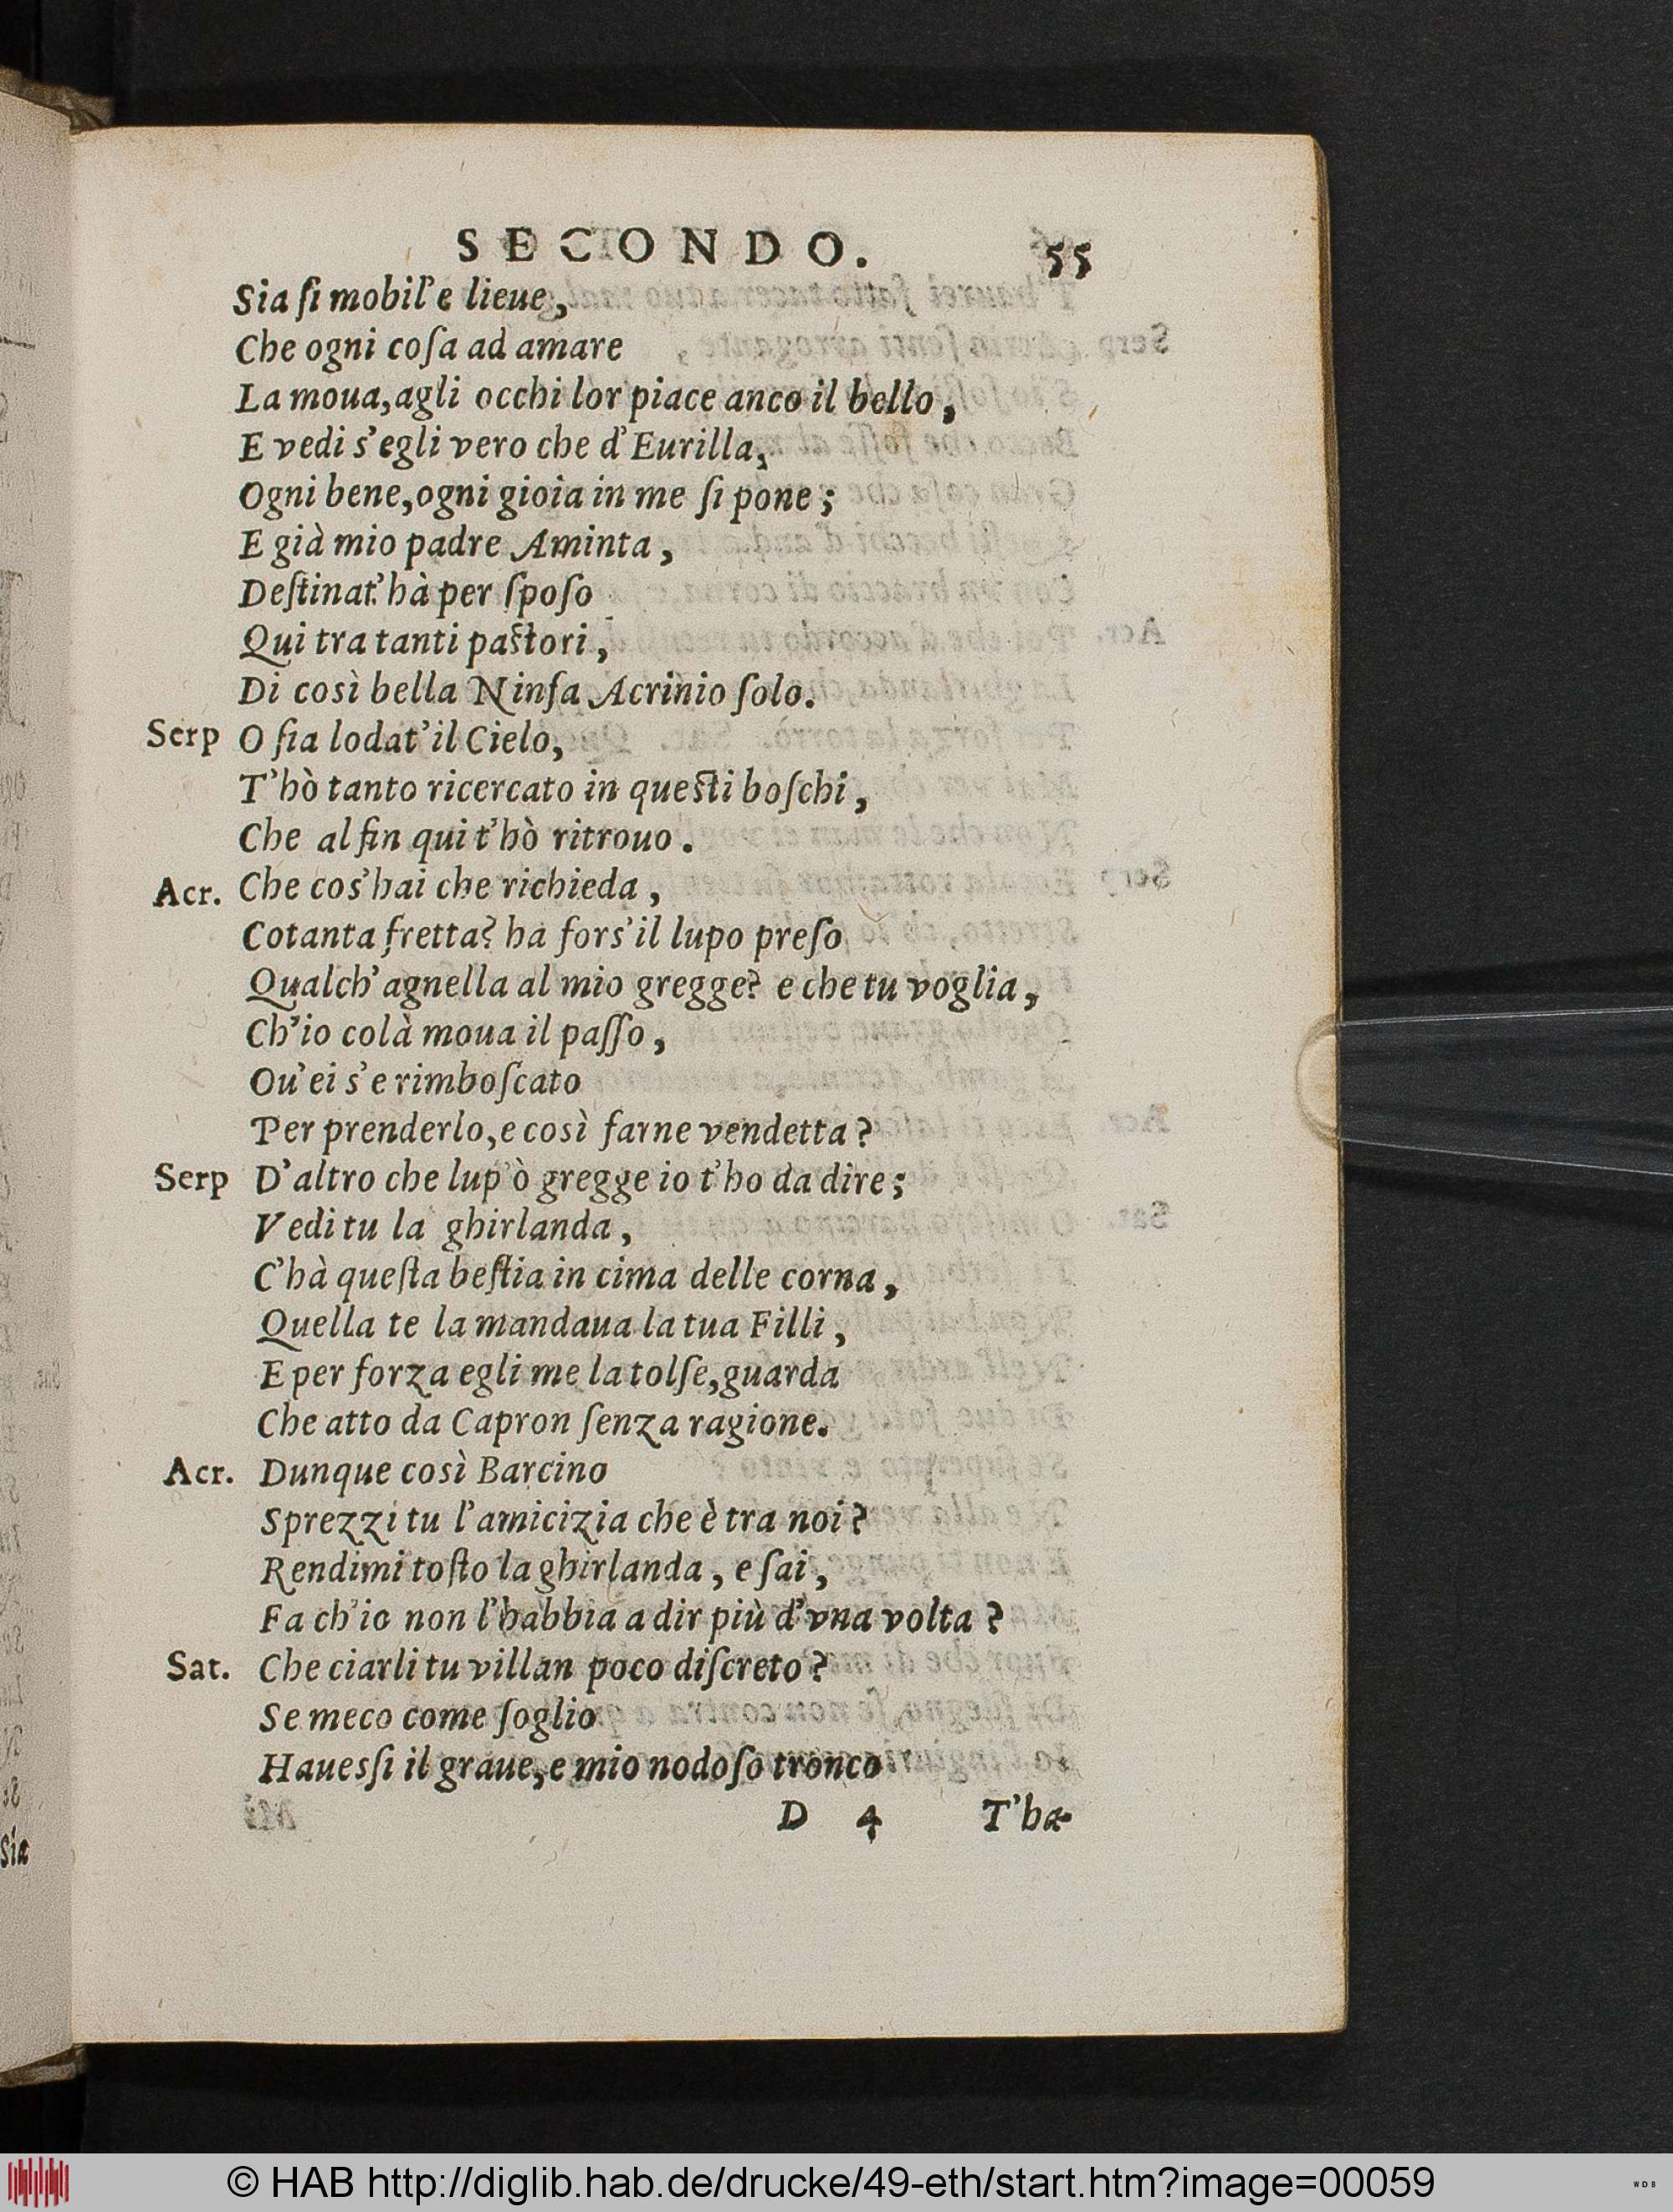 SECONDO. 55
Sia ſi mobil'e lieue,
Che ogni coſa ad amare
La moua, agli occhi lor piace anco il bello,
E vedi s'egli vero che d'Eurilla,
Ogni bene, ogni gioia in me ſi pone;
E già mio padre Aminta,
Deſtinat'hà per ſpoſo
Qui tra tanti paſtori,
Di così bella Ninſa Acrinio ſolo.
Serp O ſia lodat'il Cielo,
T'hò tanto ricercato in queſti boſchi,
Che al fin qui t'hò ritrouo.
Acr. Che cos'hai che richieda,
Cotanta fretta? ha fors'il lupo preſo
Qualch'agnella al mio gregge? e che tu voglia,
Ch'io colà moua il paſſo,
Ou'ei s'e rimboſcato
Per prenderlo, e così farne vendetta?
Serp D'altro che lup'ò gregge io t'ho da dire;
Vedi tu la ghirlanda,
C'hà queſta beſtia in cima delle corna,
Quella te la mandaua la tua Filli,
E per forza egli me la tolſe, guarda
Che atto da Capron ſenza ragione.
Acr. Dunque così Barcino
Sprezzi tu l'amicizia che è tra noi?
Rendimi toſto la ghirlanda, e ſai,
Fa ch'io non l'habbia a dir più d'vna volta?
Sat. Che ciarli tu villan poco diſcreto?
Se meco come ſoglio
Haueſſi il graue, e mio nodoſo tronco
D 4 T'ha-
Sia
© HAB http://diglib.hab.de/drucke/49-eth/start.htm?image=00059
WDB